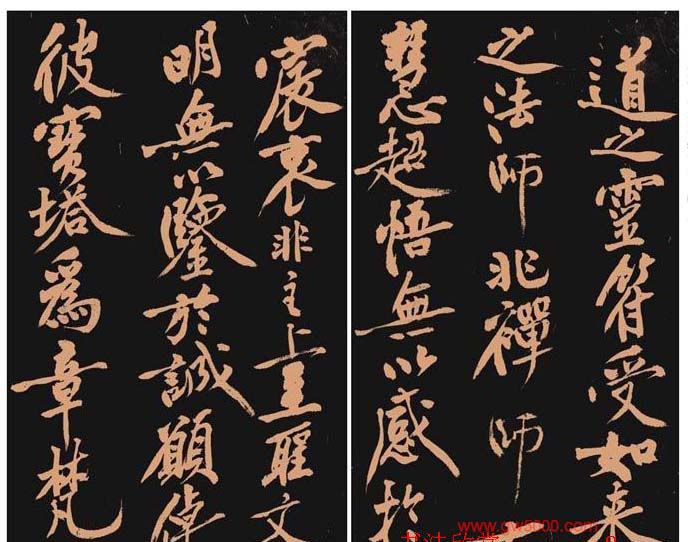 道之靈符受如来
之法師非禪師
慧超悟無以感於
宸衷非主上至聖文
明無以鑒於誠願倬
彼寶塔為章梵